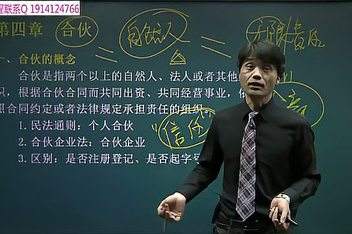 程联系Q 1914124766
第四章 合伙 = 自然人
一、合伙的概念
合伙是指两个以上的自然人、法人或者其他
织，根据合伙合同而共同出资、共同经营事业，
照合同约定或者法律规定承担责任的组织
1. 民法通则：个人合伙 信任
2. 合伙企业法：合伙企业
3. 区别：是否注册登记、是否起字号